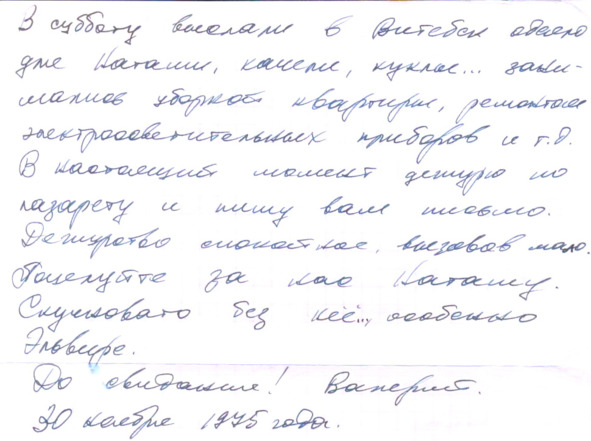 В субботу выслали в Витебск одеяло
для Наташи, качели, куклы... зани-
мались уборкой квартиры, ремонтом
электроосветительных приборов и т.д.
В настоящий момент дежурю по
лазарету и пишу вам письмо.
Дежурство спокойное, вызовов мало.
Поцелуйте за нас Наташу.
Скучновато без неё.., особенно
Эльвире.
До свидания! Валерий.
30 ноября 1975 года.